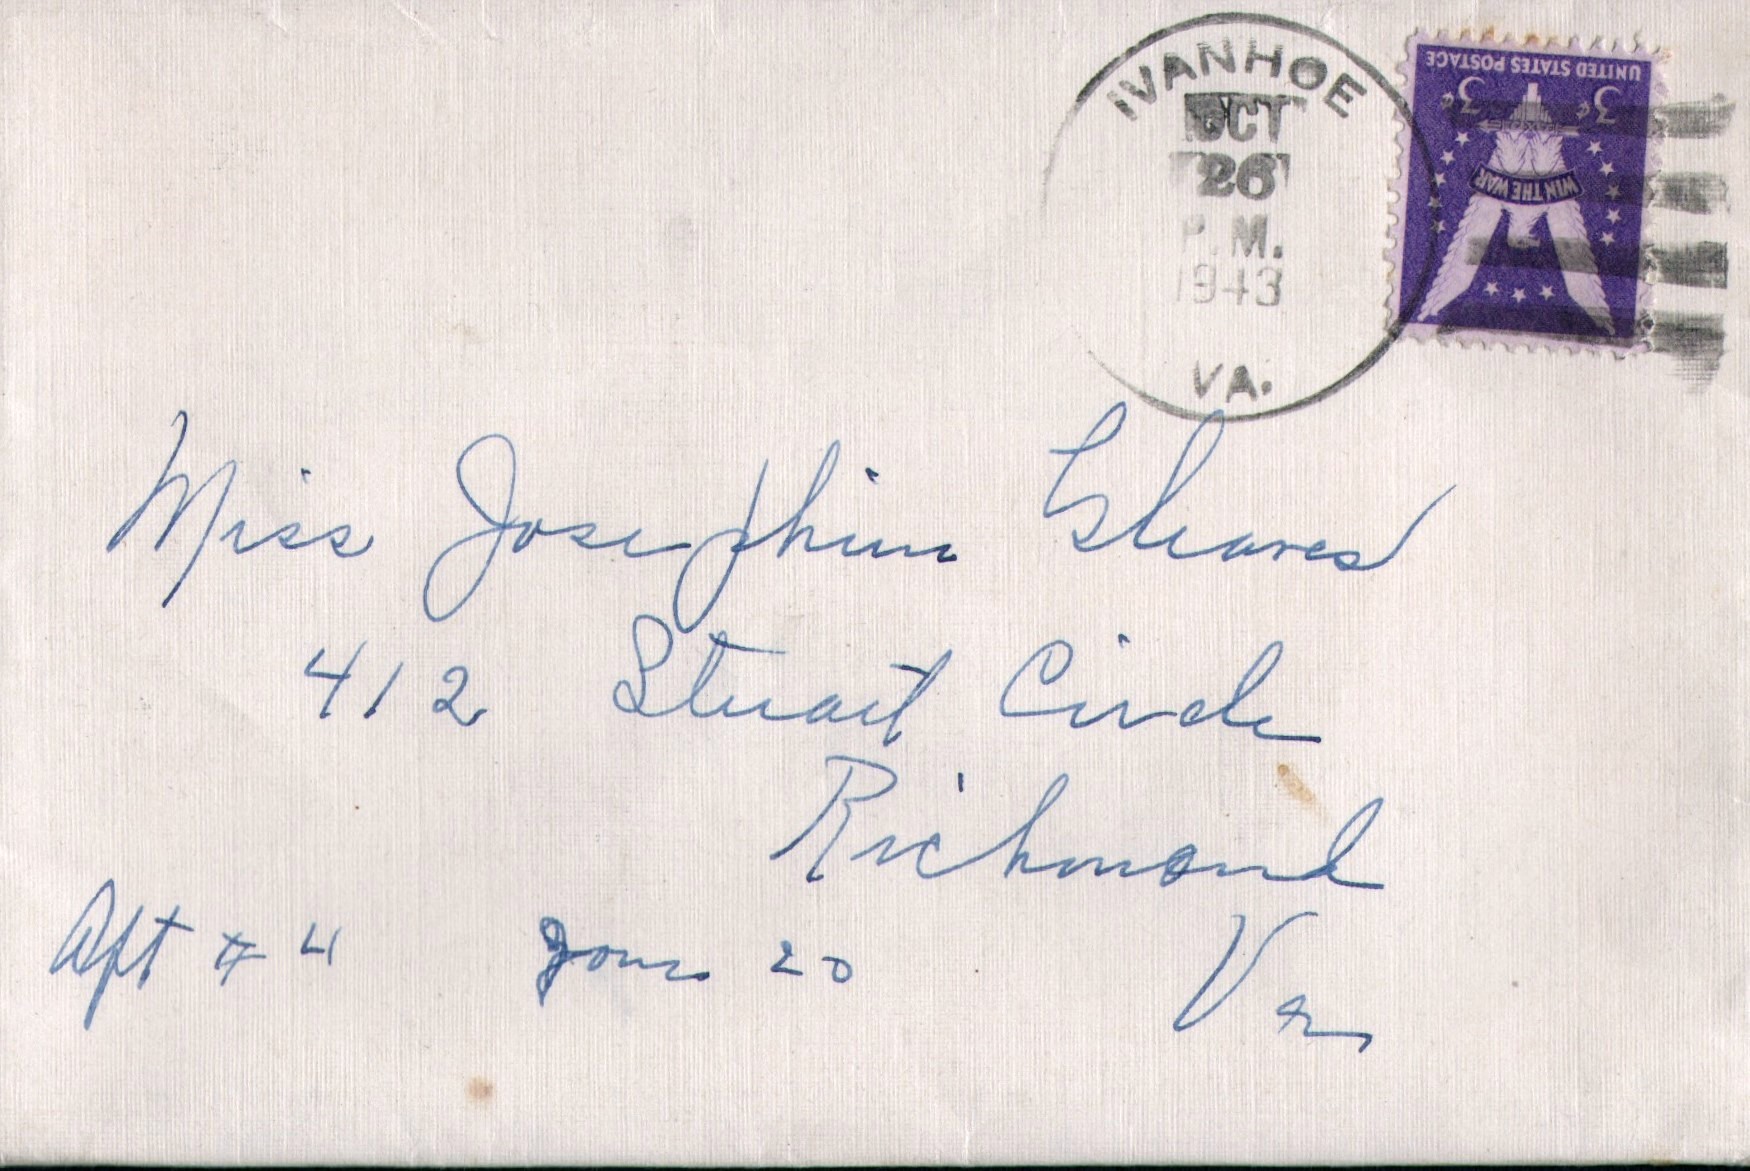 IVANHOE
OCT
26
P.M.
1943
VA.
UNITED STATES POSTAGE
3¢ 3¢
WIN THE WAR
Miss Josephine Gleaves
412 Stuart Circle
Richmond
Apt # 4 Zone 20
Va